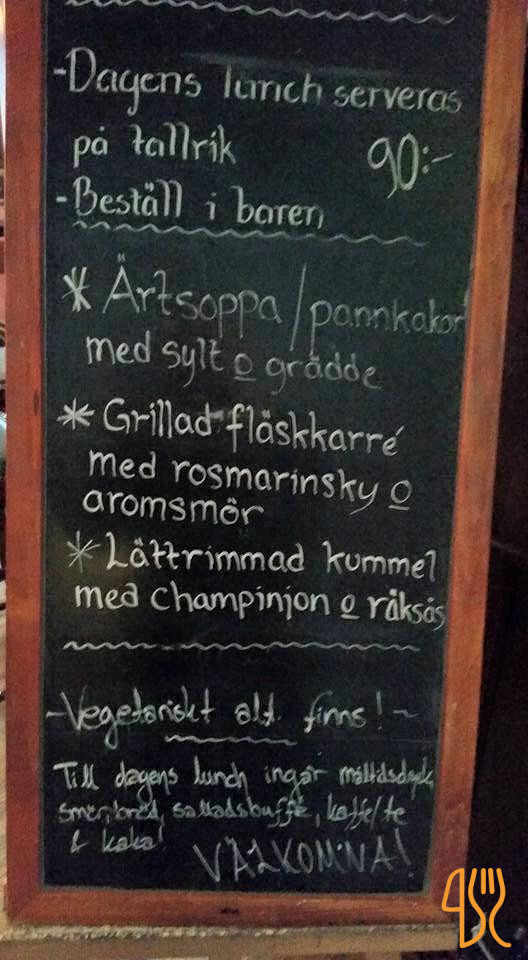 -Dagens lunch serveras
på tallrik 90:-
-Beställ i baren
* Ärtsoppa/pannkakor
med sylt o grädde
* Grillad fläskkarré
med rosmarinsky o
aromsmör
* Lättrimmad kummel
med champinjon o räksås
-Vegetariskt alt. finns!-
Till dagens lunch ingår måltidsdryck,
smör, bröd, salladsbuffé, kaffe/te
& kaka!
VÄLKOMNA!